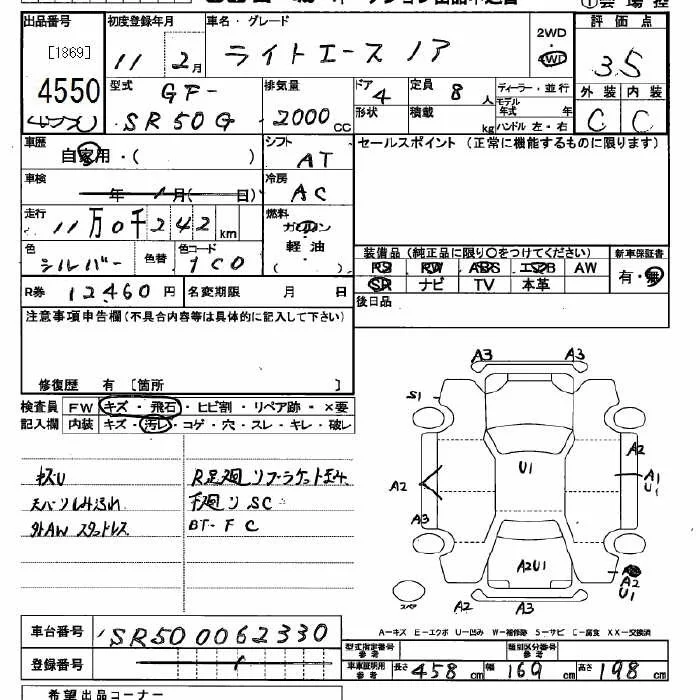 出品番号 初度登録年月 車名・グレード 評価点
[1869] 11 2月 ライトエース ノア 2WD 4WD 3.5
4550
型式 GF- 排気量 ドア 4 定員 8人 ディーラー・並行 外装 内装
SR50G 2000cc 形状 積載 kg モデル年式 年 ハンドル 左・右 C C
車歴 自家用・( ) シフト AT セールスポイント (正常に機能するものに限ります)
車検 年 月( 日) 冷房 AC
走行 11万0千242km 燃料 ガソリン 軽油 ( )
色 シルバー 色替 色コード 1C0
装備品 (純正品に限り○をつけてください) 新車保証書
PS PW ABS エアB AW 有・無
SR ナビ TV 本革
R券 12460円 名変期限 月 日 後日品
注意事項申告欄 (不具合内容等は具体的に記入して下さい)
修復歴 有 [箇所 ]
検査員 FW キズ・飛石・ヒビ割・リペア跡・×要
記入欄 内装 キズ・汚レ・コゲ・穴・スレ・キレ・破レ
キズU
天バリしみ汚れ
外AW スタットレス
下廻りSC
BT-FC
A3 A3
S1
A2
U1 A1
A2 U1
A3
A2U1 A2
U1
スペア A2 A3
A-キズ E-エクボ U-凹み W-補修跡 S-サビ C-腐食 XX-交換済
車台番号 SR50 0062330 型式指定番号 参考 類別区分番号 参考
登録番号 車車証明用 参考 長さ 458cm 幅 169cm 高さ 198cm
希望出品コーナー